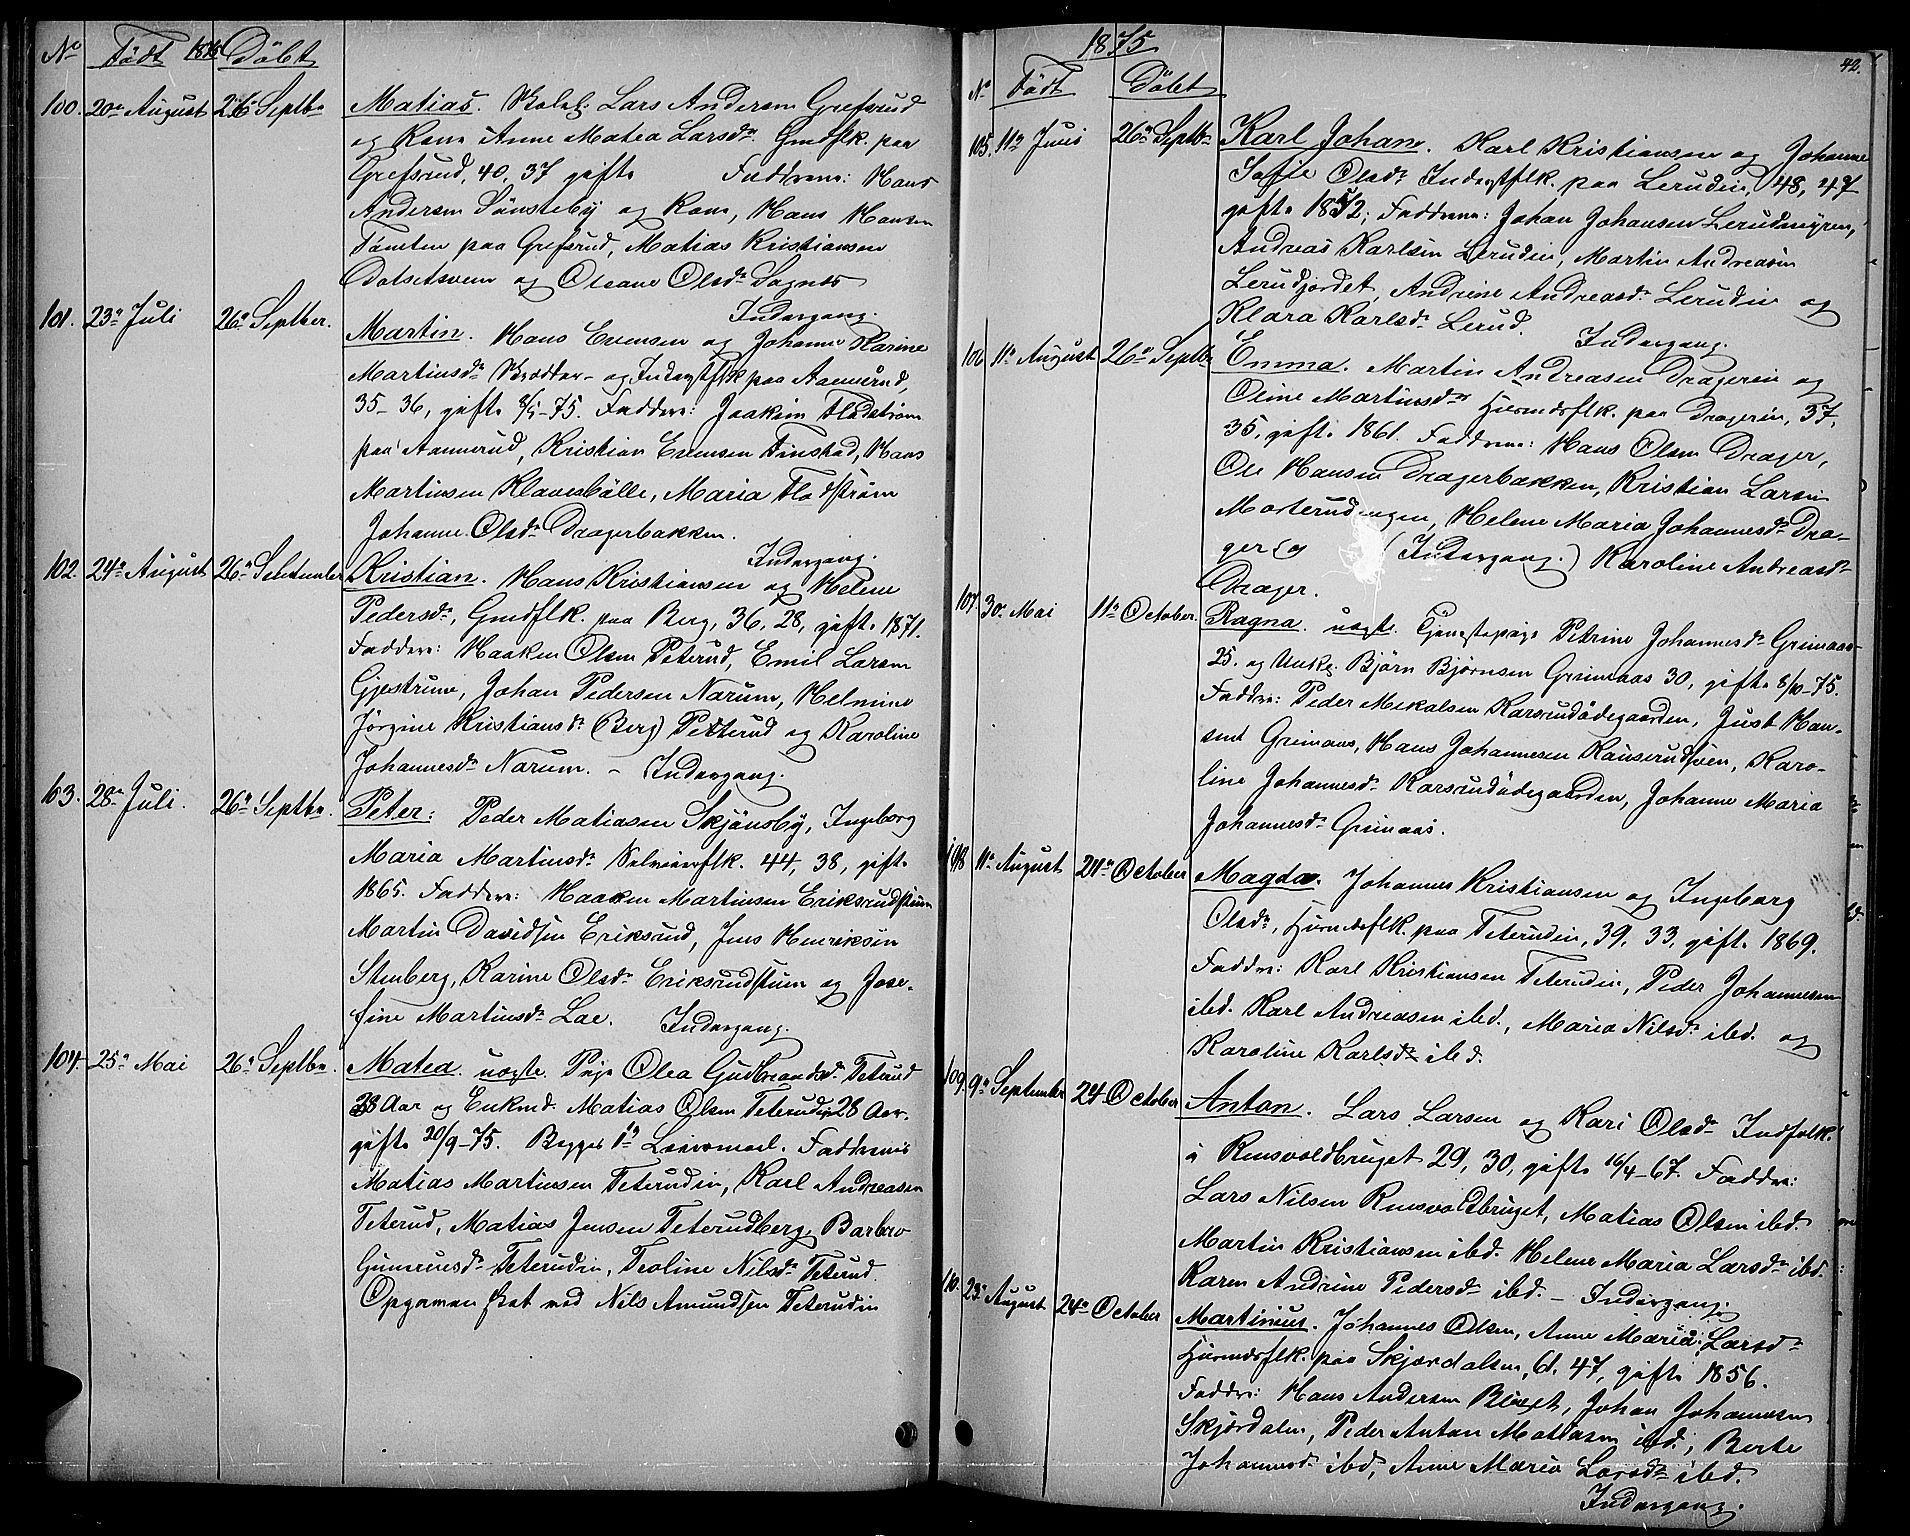 No Födt 1875 Döbt
100. 20de August 26de Septbr Matias. Lars Andersen Grefsrud
og Kone Anne Matea Larsdr. Gmdflk. paa
Grefsrud, 40, 37 gifte Faddrene: Hans
Andersen Sönsteby og Kone, Hans Hansen
Tömten paa Grefsrud, Matias Kristiansen
og Oleane Olsdr Sognes
Indergang.
101. 23de Juli 26de Septber. Martin. Hans Evensen og Johanne Karine
Martinsdr. og Inderstflk paa Aannerud,
35-36, gifte 8/5-75. Faddre: Joakim Flodström
paa Aannerud, Kristian Evensen Finstad, Hans
Martinsen Klavesbölle, Maria Flodström
Johanne Olsdr Dragerbakken.
Indergang.
102. 24de August 26de September Kristian. Hans Kristiansen og Helene
Pedersdr, Gmdflk. paa Berg, 36, 28, gifte 1871.
Faddre: Haaken Olsen Peterud, Emil Larsen
Gjestrum, Johan Pedersen Narum, Helmine
Jörgine Kristiansdr (Berg) Petterud og Karoline
Johannesdr Narum. - Indergang.
103. 28de Juli. 26de Septbr. Peter: Peder Matiasen Skjönsby, Ingeborg
Maria Martinsdr Selveierflk. 44, 38, gifte
1865. Faddre: Haaken Martinsen Eriksrudstuen
Martin Davidsen Eriksrud, Jens Henriksen
Stenberg, Karine Olsdr Eriksrudstuen og Jose-
fine Martinsdr Lae. Indergang.
104. 25de Mai 26de Septbr. Matea. uægte. Pige Olea Gudbrandsdr Teterud
28 Aar og Enkmd. Matias Olsen Teterudeie 28 Aar.
gifte 20/9-75. Begges 1ste Leiermaal. Faddrene:
Matias Martinsen Teterudeie, Karl Andreasen
Teterud, Matias Jensen Teterudberg, Barbro
Gunerusdr Teterudeie, Teoline Nilsdr Teterud.
Opgaven skat ved Nils Amundsen Teterudeie
1875
42.
No Födt Döbt
105. 11te Juni 26de Septbr Karl Johan. Karl Kristiansen og Johanne
Sofie Olsdr Inderstflk. paa Lerudeie, 48, 47
gifte 1852; Faddrene: Johan Johansen Lerudmyren,
Andreas Karlsen Lerudeie, Martin Andreasen
Lerudjordet, Andrine Andreasdr Lerudeie og
Klara Karlsdr Lerud.
Indergang.
106 11te August 26de Septbr Emma. Martin Andreasen Dragereie og
Oline Martinsdr Husmdsflk. paa Dragereie, 37,
35, gifte 1861. Faddrene: Hans Olsen Drager,
Ole Hansen Dragerbakken, Kristian Larsen
Morterudengen, Helene Maria Johannesdr Dra-
ger og (Indergang.) Karoline Andreasdr
Drager.
107. 30te Mai 11te October. Ragna. uægte. Tjenestepige Petrine Johannesdr Grimaas
25. og Unke: Björn Björnsen Grimaas 30, gifte 8/10-75.
Faddre: Peder Mekalsen Karsrudödegaarden, Just Han-
sen Grimaas, Hans Johannesen Kauserudsveen, Karo-
line Johannesdr Karsrudödegaarden, Johanne Maria
Johannesdr Grimaas.
108 11te August 24de October Magda. Johannes Kristiansen og Ingeborg
Olsdr, Husmdsflk. paa Teterudeie, 39, 33, gifte 1869.
Faddre: Karl Kristiansen Teterudeie, Peder Johannesen
ibd. Karl Andreasen ibd., Maria Nilsdr ibd. og
Karoline Karlsdr ibd.
109. 9de September 24 October Anton. Lars Larsen og Kari Olsdr Indfolk.
i Rensvoldbruget 29, 30, gifte 16/4-67. Faddre:
Lars Nilsen Rensvoldbruget, Matias Olsen ibd.
Martin Kristiansen ibd. Helene Maria Larsdr ibd.
Karen Andrine Pedersdr ibd. - Indergang.
110. 23de August 24de October Martinius. Johannes Olsen, Anne Maria Larsdr
Husmdsflk. paa Skjærdalen, 61, 47, gifte 1856.
Faddre: Hans Andersen, Johan Johannesen
Skjærdalen, Peder Anton Matiasen ibd., Berte
Johannesdr ibd, Anne Maria Larsdr ibd.
Indergang.